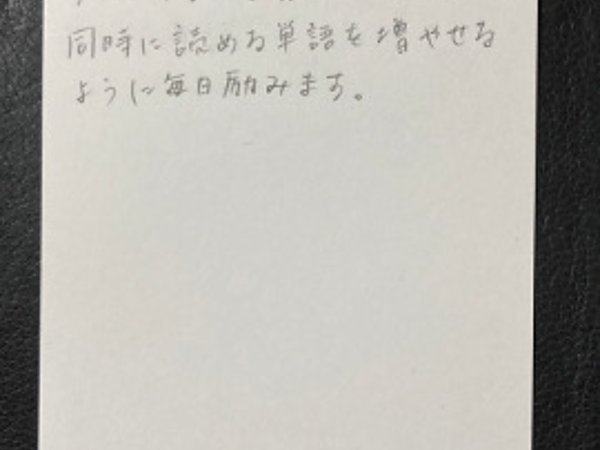 同時に読める単語を増やせる
ように毎日励みます。